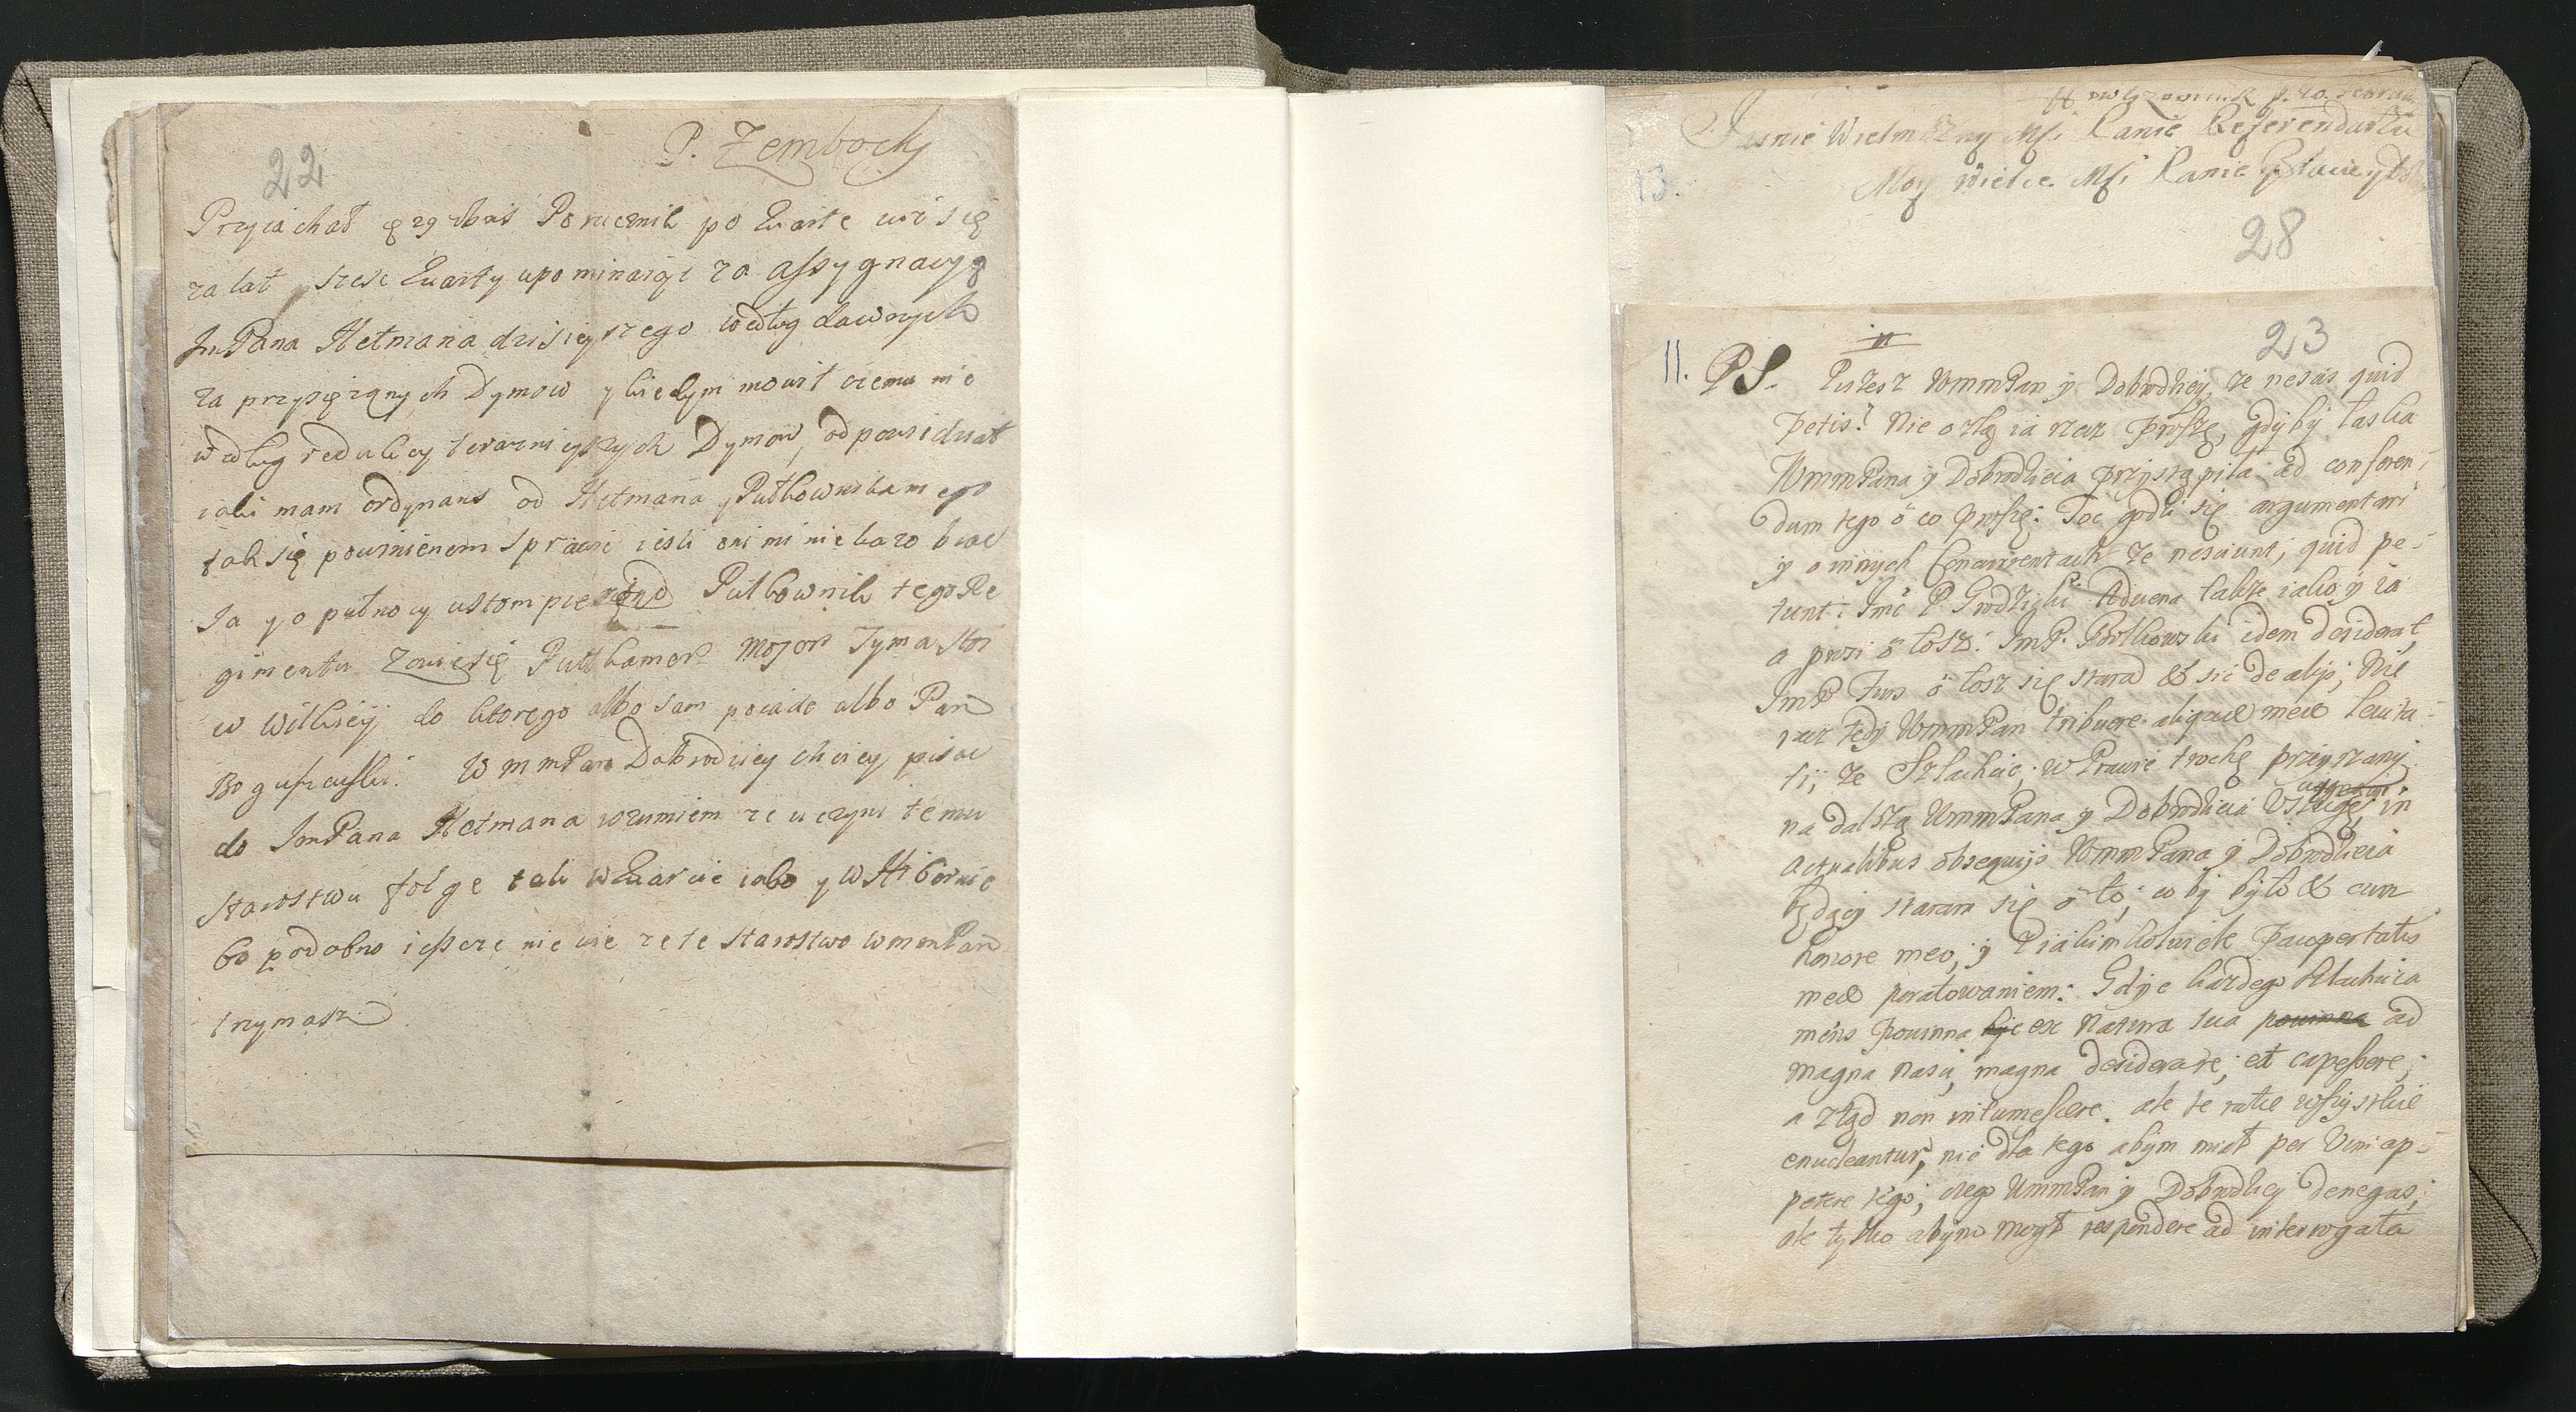 P. Zembocki
22
Przyiachał Porucznik po kwartę
za lat sześć kwarty upominaiąc za assygnacyą
ImPana Hetmana dzisieyszego według dawnych
zaprzysięzonych Dymow y kiedym mowił czemu nie
według redukcy teraznieyszych Dymow, odpowiedział
iaki mam ordynans od Hetmana y Pułkownika mego
tak się powinienem sprawic iesli oni mi nie kazo brac
Ja y o pułnocy ustompie Pułkownik tego Re
gimentu zowie się Puttkamer Major
w do ktorego albo sam poiade albo Pan
Boguszewski. WmmPan Dobrodziey chciey pisac
do ImPana Hetmana rozumiem ze uczyni temu
Starostwu folge tak w kwarcie iako y w Hibernie
bo podobno ieszcze nie wie ze te Starostwo WmmPan
trzymasz
Jasnie Wielmozny Msci Panie Referendarzu
13.
Moy Wielce Msci Panie y
28
23
11. PS. Piszesz WmmPan y Dobrodziey, ze nescis quid
petis? Nie o złą ia rzecz proszę, gdyby łaska
WmmPana y Dobrodzieia przystąpiła ad conferen-
dum tego o co proszę: Toc godzi się argumentari
y o innych Concurrentach ze nesciunt, quid pe-
tunt: Imć P Grodzicki Advena także iako y ia
a prosi o tosz: ImP. idem desiderat,
ImP o tosz się stara & sic de alijs; Nie
racz tedy WmmPan tribuere aliquid meae levita-
ti, ze Szlachcic, w Prawie trochę przeyrzany
na dalszą WmmPana y Dobrodzieia Usługę, in
actualibus obsequijs WmmPana y Dobrodzieia
będący staram się o to, co by było & cum
honore meo, y z iakimkolwiek paupertatis
meae poratowaniem: Gdyz kazdego szlachcica
mens powinna byc ex natura sua powinna ad
magna nasci, magna desiderare, et capessere,
a ztąd non intumescere. ale te racie wszystkie
enucleantur, nie dla tego abym miał per Vim ap-
petere tego, czego WmmPan y Dobrodziey denegas;
ale tylko abym mogł respondere ad interrogata